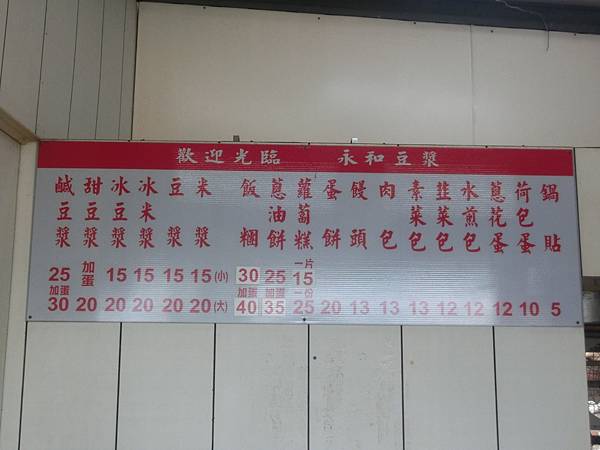 歡迎光臨 永和豆漿
鹹豆漿
甜豆漿
冰豆漿
冰米漿
豆漿
米漿
飯糰
蔥油餅
蘿蔔糕
蛋餅
饅頭
肉包
素菜包
韭菜包
水煎包
蔥花蛋
荷包蛋
鍋貼
一片
25 加蛋 15 15 15 15 (小) 30 25 15
加蛋 加蛋 加蛋 一份
30 20 20 20 20 20 (大) 40 35 25 20 13 13 13 12 12 12 10 5